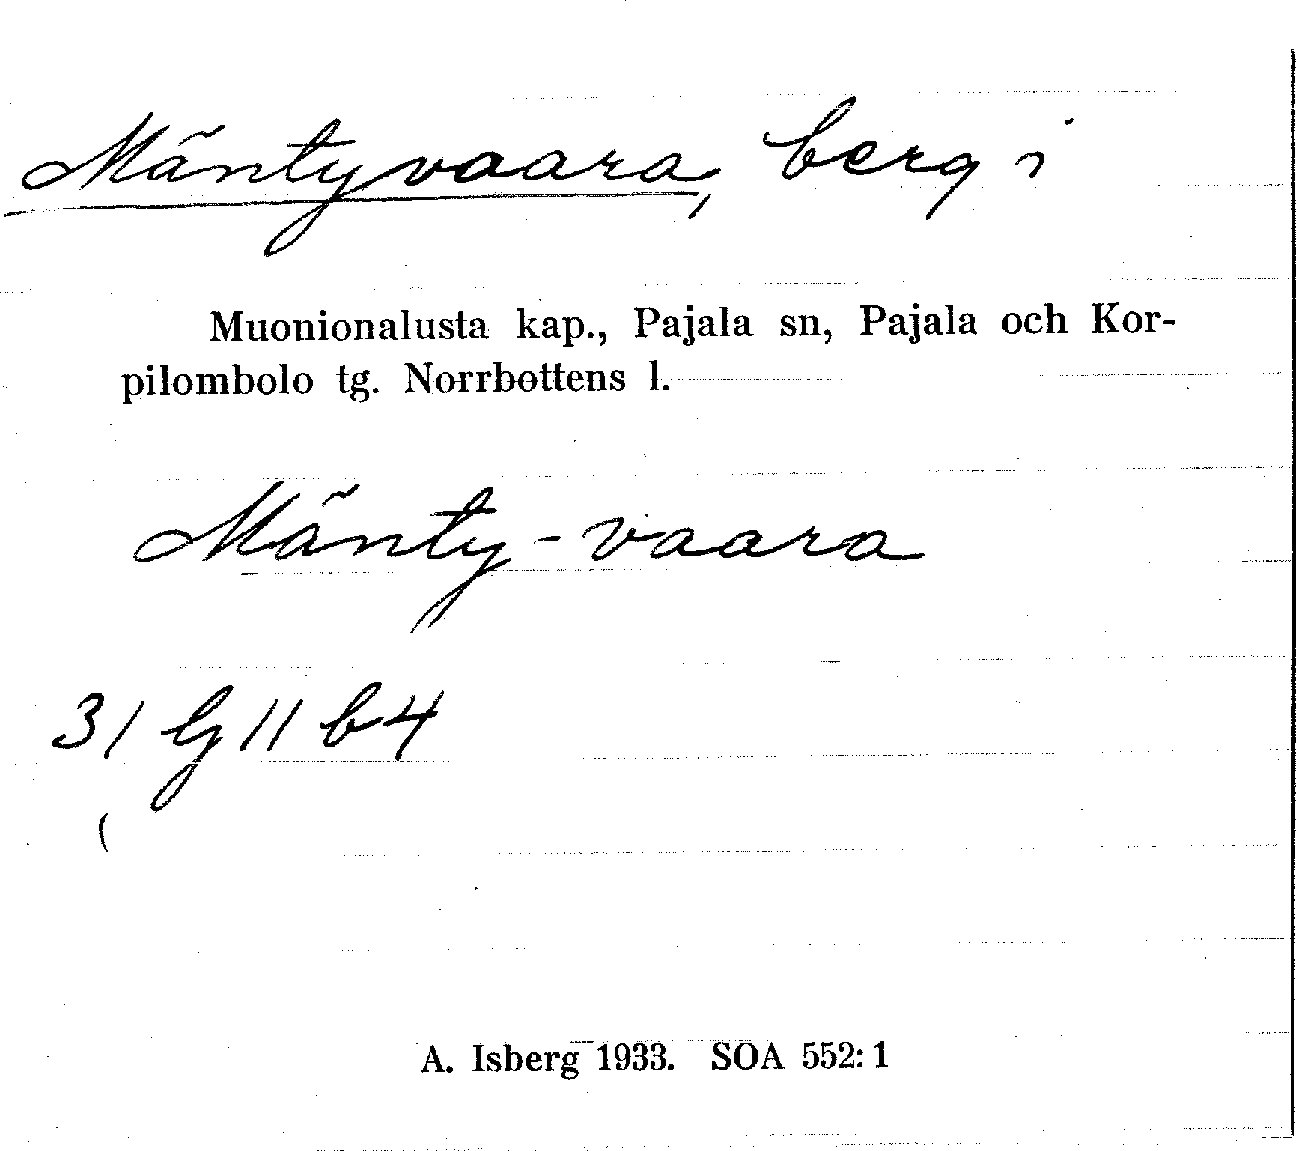 Mäntyvaara, berg i
Muonionalusta kap., Pajala sn, Pajala och Kor-
pilombolo tg. Norrbottens l.
Mänty-vaara
31 G 11 b 4
A. Isberg 1933. SOA 552: 1